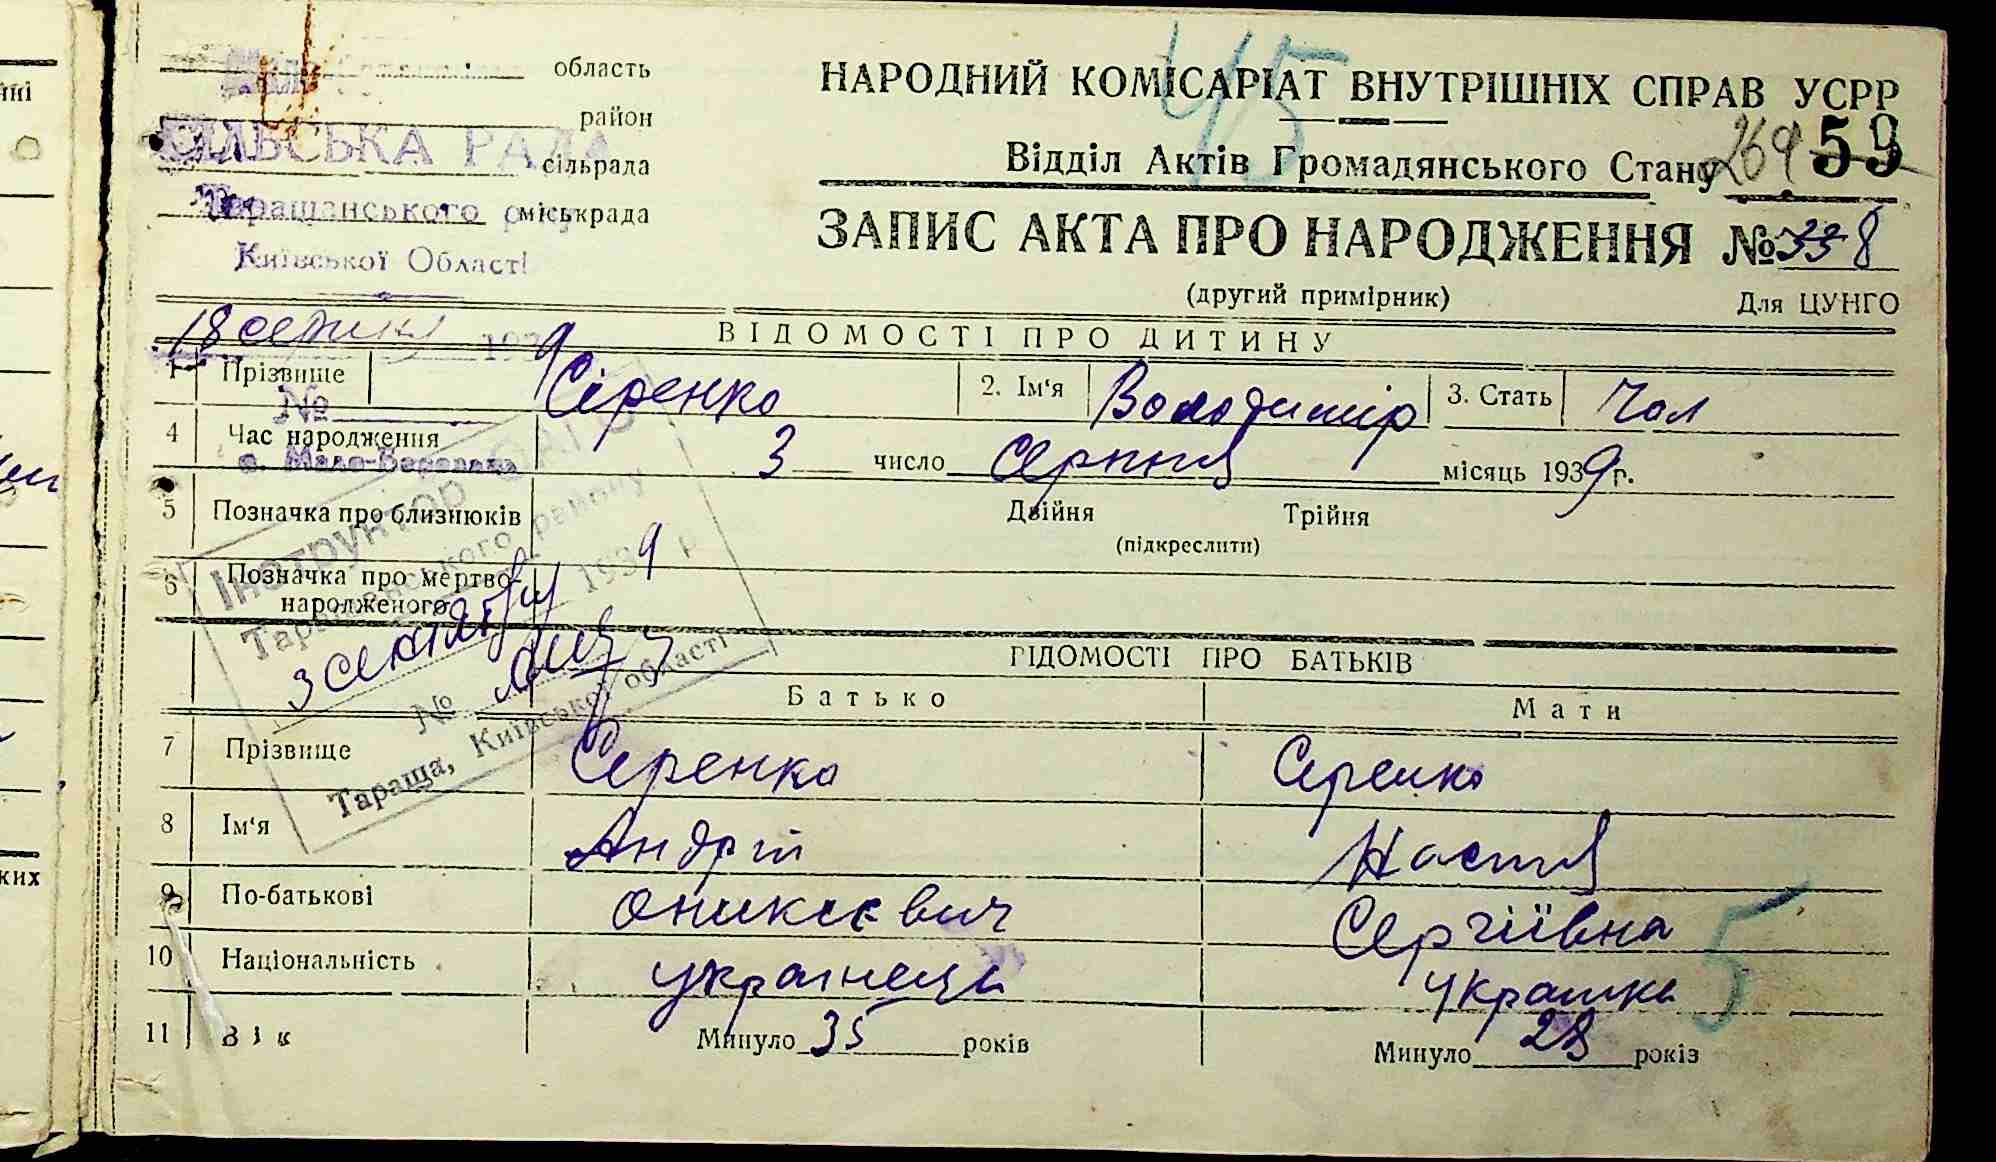 область
район
СІЛЬСЬКА РАДА
сільрада
Таращанського
міськрада
Київської Області
45
НАРОДНИЙ КОМІСАРІАТ ВНУТРІШНІХ СПРАВ УСРР
Відділ Актів Громадянського Стану
269 59
ЗАПИС АКТА ПРО НАРОДЖЕННЯ № 338
(другий примірник)
Для ЦУНГО
18 1939
ВІДОМОСТІ ПРО ДИТИНУ
1 Прізвище Сіренко 2. Ім'я Володимир 3. Стать Чол
№
4 Час народження 3 число Серпня місяць 1939 г.
с. Мала-Березянка
5 Позначка про близнюків Двійня Трійня
(підкреслити)
6 Позначка про мертво-
народженого
Інструктор
Таращанського району
3 1939 р
№
Тараща, Київської області
ВІДОМОСТІ ПРО БАТЬКІВ
Батько Мати
7 Прізвище Серенко Серенко
8 Ім'я Андрій Настя
9 По-батькові Оникієвич Сергіївна
10 Національність українець українка
11 Вік Минуло 35 років Минуло 28 років
5
ких